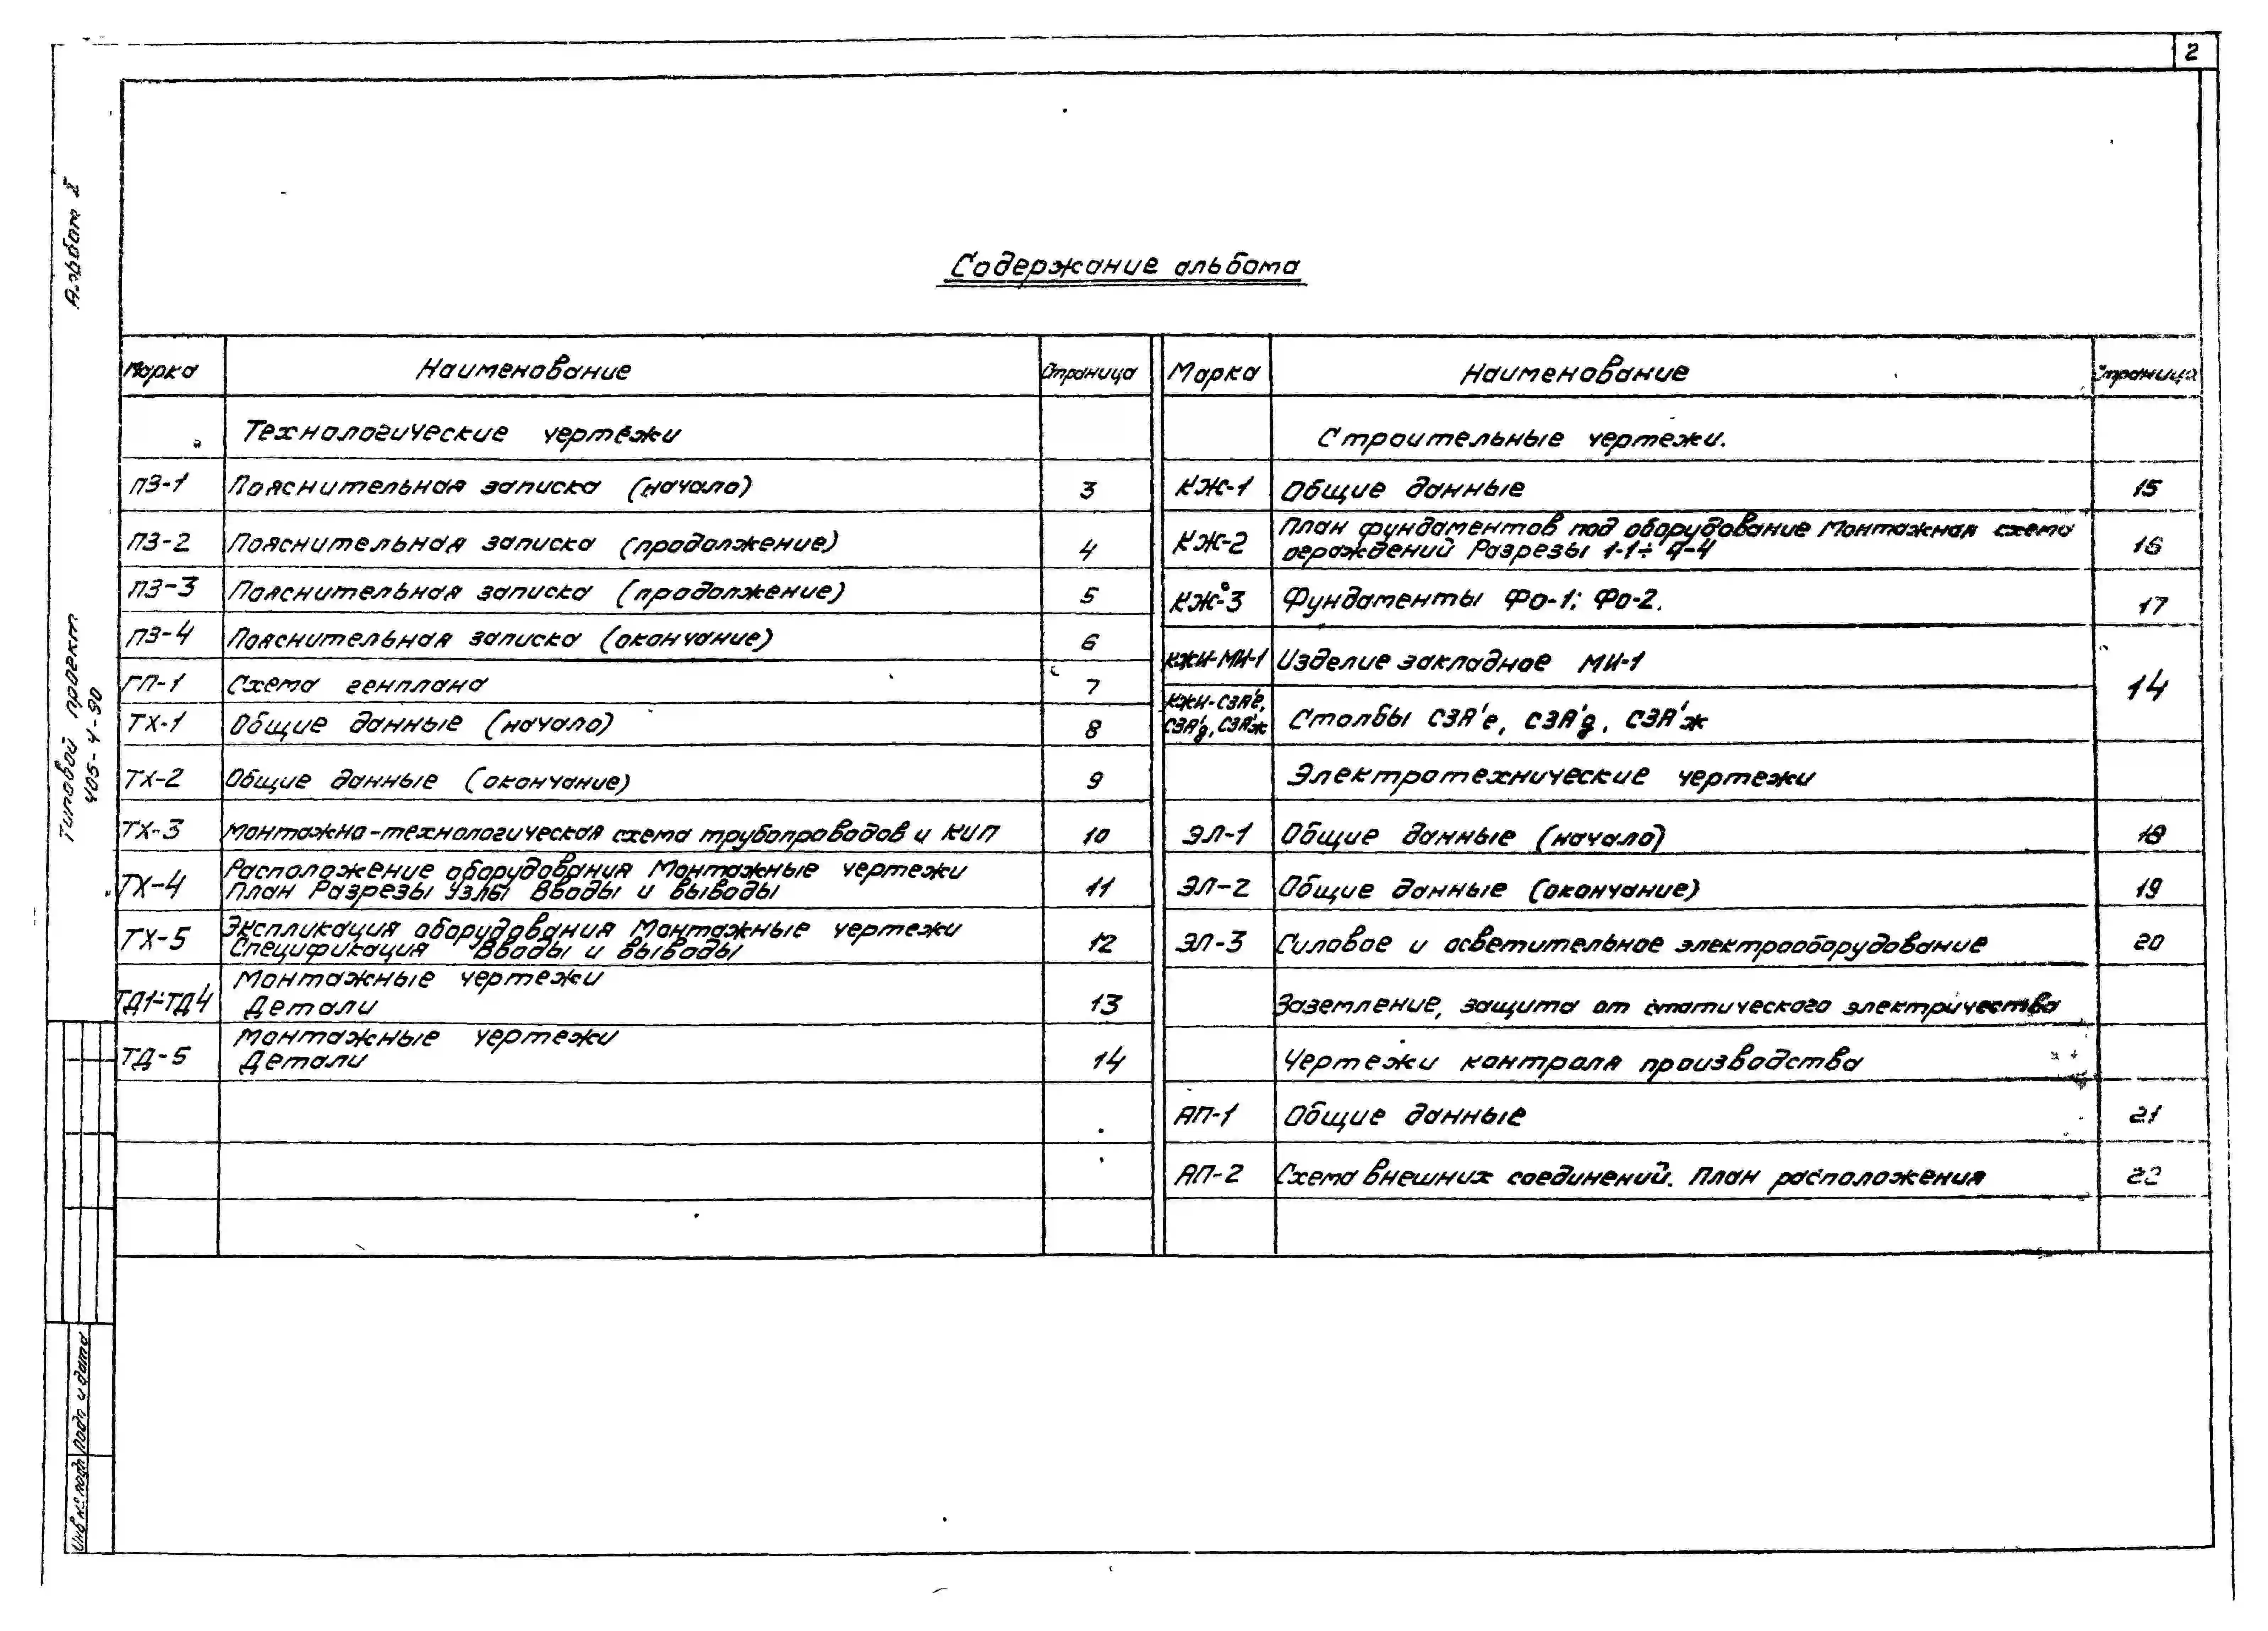 2
Альбом I
Типовой проект
405-4-90
Содержание альбома
Марка Наименование Страница
Технологические чертежи
ПЗ-1 Пояснительная записка (начало) 3
ПЗ-2 Пояснительная записка (продолжение) 4
ПЗ-3 Пояснительная записка (продолжение) 5
ПЗ-4 Пояснительная записка (окончание) 6
ГП-1 Схема генплана 7
ТХ-1 Общие данные (начало) 8
ТХ-2 Общие данные (окончание) 9
ТХ-3 Монтажно-технологическая схема трубопроводов и КИП 10
ТХ-4 Расположение оборудования Монтажные чертежи
План Разрезы Узлы Вводы и выводы 11
ТХ-5 Экспликация оборудования Монтажные чертежи
Спецификация Вводы и выводы 12
ТД1÷ТД4 Монтажные чертежи
Детали 13
ТД-5 Монтажные чертежи
Детали 14
Марка Наименование Страница
Строительные чертежи.
КЖ-1 Общие данные 15
КЖ-2 План фундаментов под оборудование Монтажная схема
ограждений Разрезы 1-1÷4-4 16
КЖ-3 Фундаменты ФО-1; ФО-2. 17
КЖИ-МИ-1 Изделие закладное МИ-1
14
КЖИ-СЗЯ'е,
СЗЯ'д, СЗЯ'ж Столбы СЗЯ'е, СЗЯ'д, СЗЯ'ж
Электротехнические чертежи
ЭЛ-1 Общие данные (начало) 18
ЭЛ-2 Общие данные (окончание) 19
ЭЛ-3 Силовое и осветительное электрооборудование 20
Заземление, защита от статического электричества
Чертежи контроля производства
АП-1 Общие данные 21
АП-2 Схема внешних соединений. План расположения 22
Подп и дата
Инв № подл